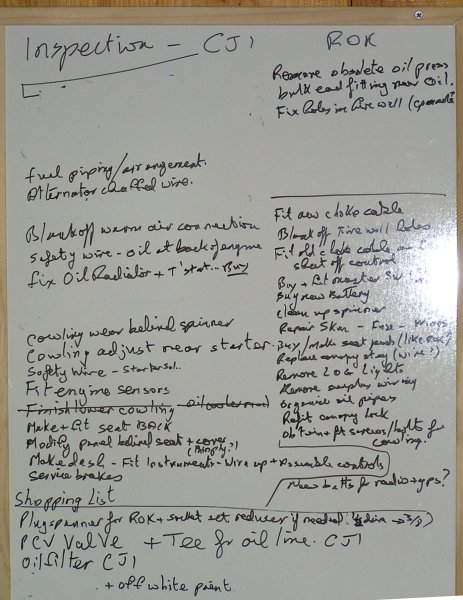 Inspection - CJ1
fuel piping/arrangement.
Alternator chaffed wire.
Blank off warm air connection
Safety wire - oil at back of engine
fix Oil Radiator + T'stat... Buy
Cowling wear behind spinner
Cowling adjust near starter.
Safety wire - starter sol..
Fit engine sensors
Finish lower cowling
Make + fit seat BACK
Modify panel behind seat + cover
Make dash - Fit Instruments - Wire up + Assemble controls
Service brakes
ROK
Remove obsolete oil press
bulk head fitting new oil.
Fix holes in firewall
Fit new choke cable
Blank off Firewall holes
Fit old choke cable
shut off control
Buy + fit master
Buy new Battery
Clean up spinner
Repair Skin - Fuse - Wings
Buy/Make seat pads (like ROK)
Replace canopy stay (wire?)
Remove LOG Lights
Remove surplus wiring
Organise oil pipes
Refit canopy lock
Obtain + fit screws/bolts for
cowling.
New batts for radio + gps?
Shopping List
Plug spanner for ROK + socket set reducer if needed.
PCV Valve + Tee for oil line. CJ1
Oil filter CJ1
+ off white paint.